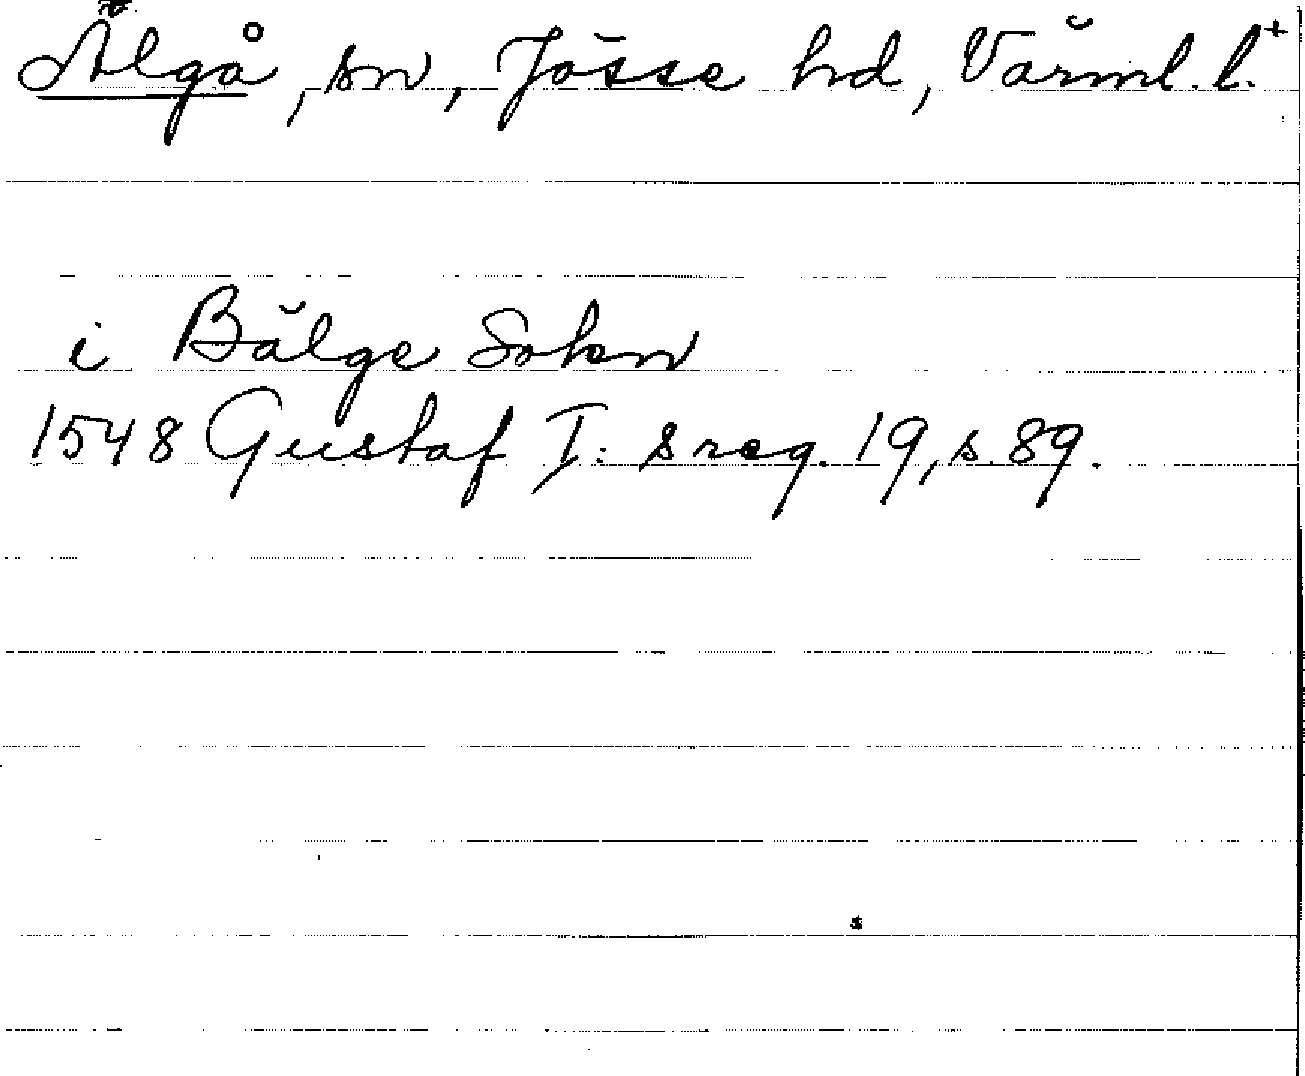 Älgå, sn, Jösse hd, Värml. l.+
i Bälge Sokn
1548 Gustaf I:s reg. 19, s. 89.